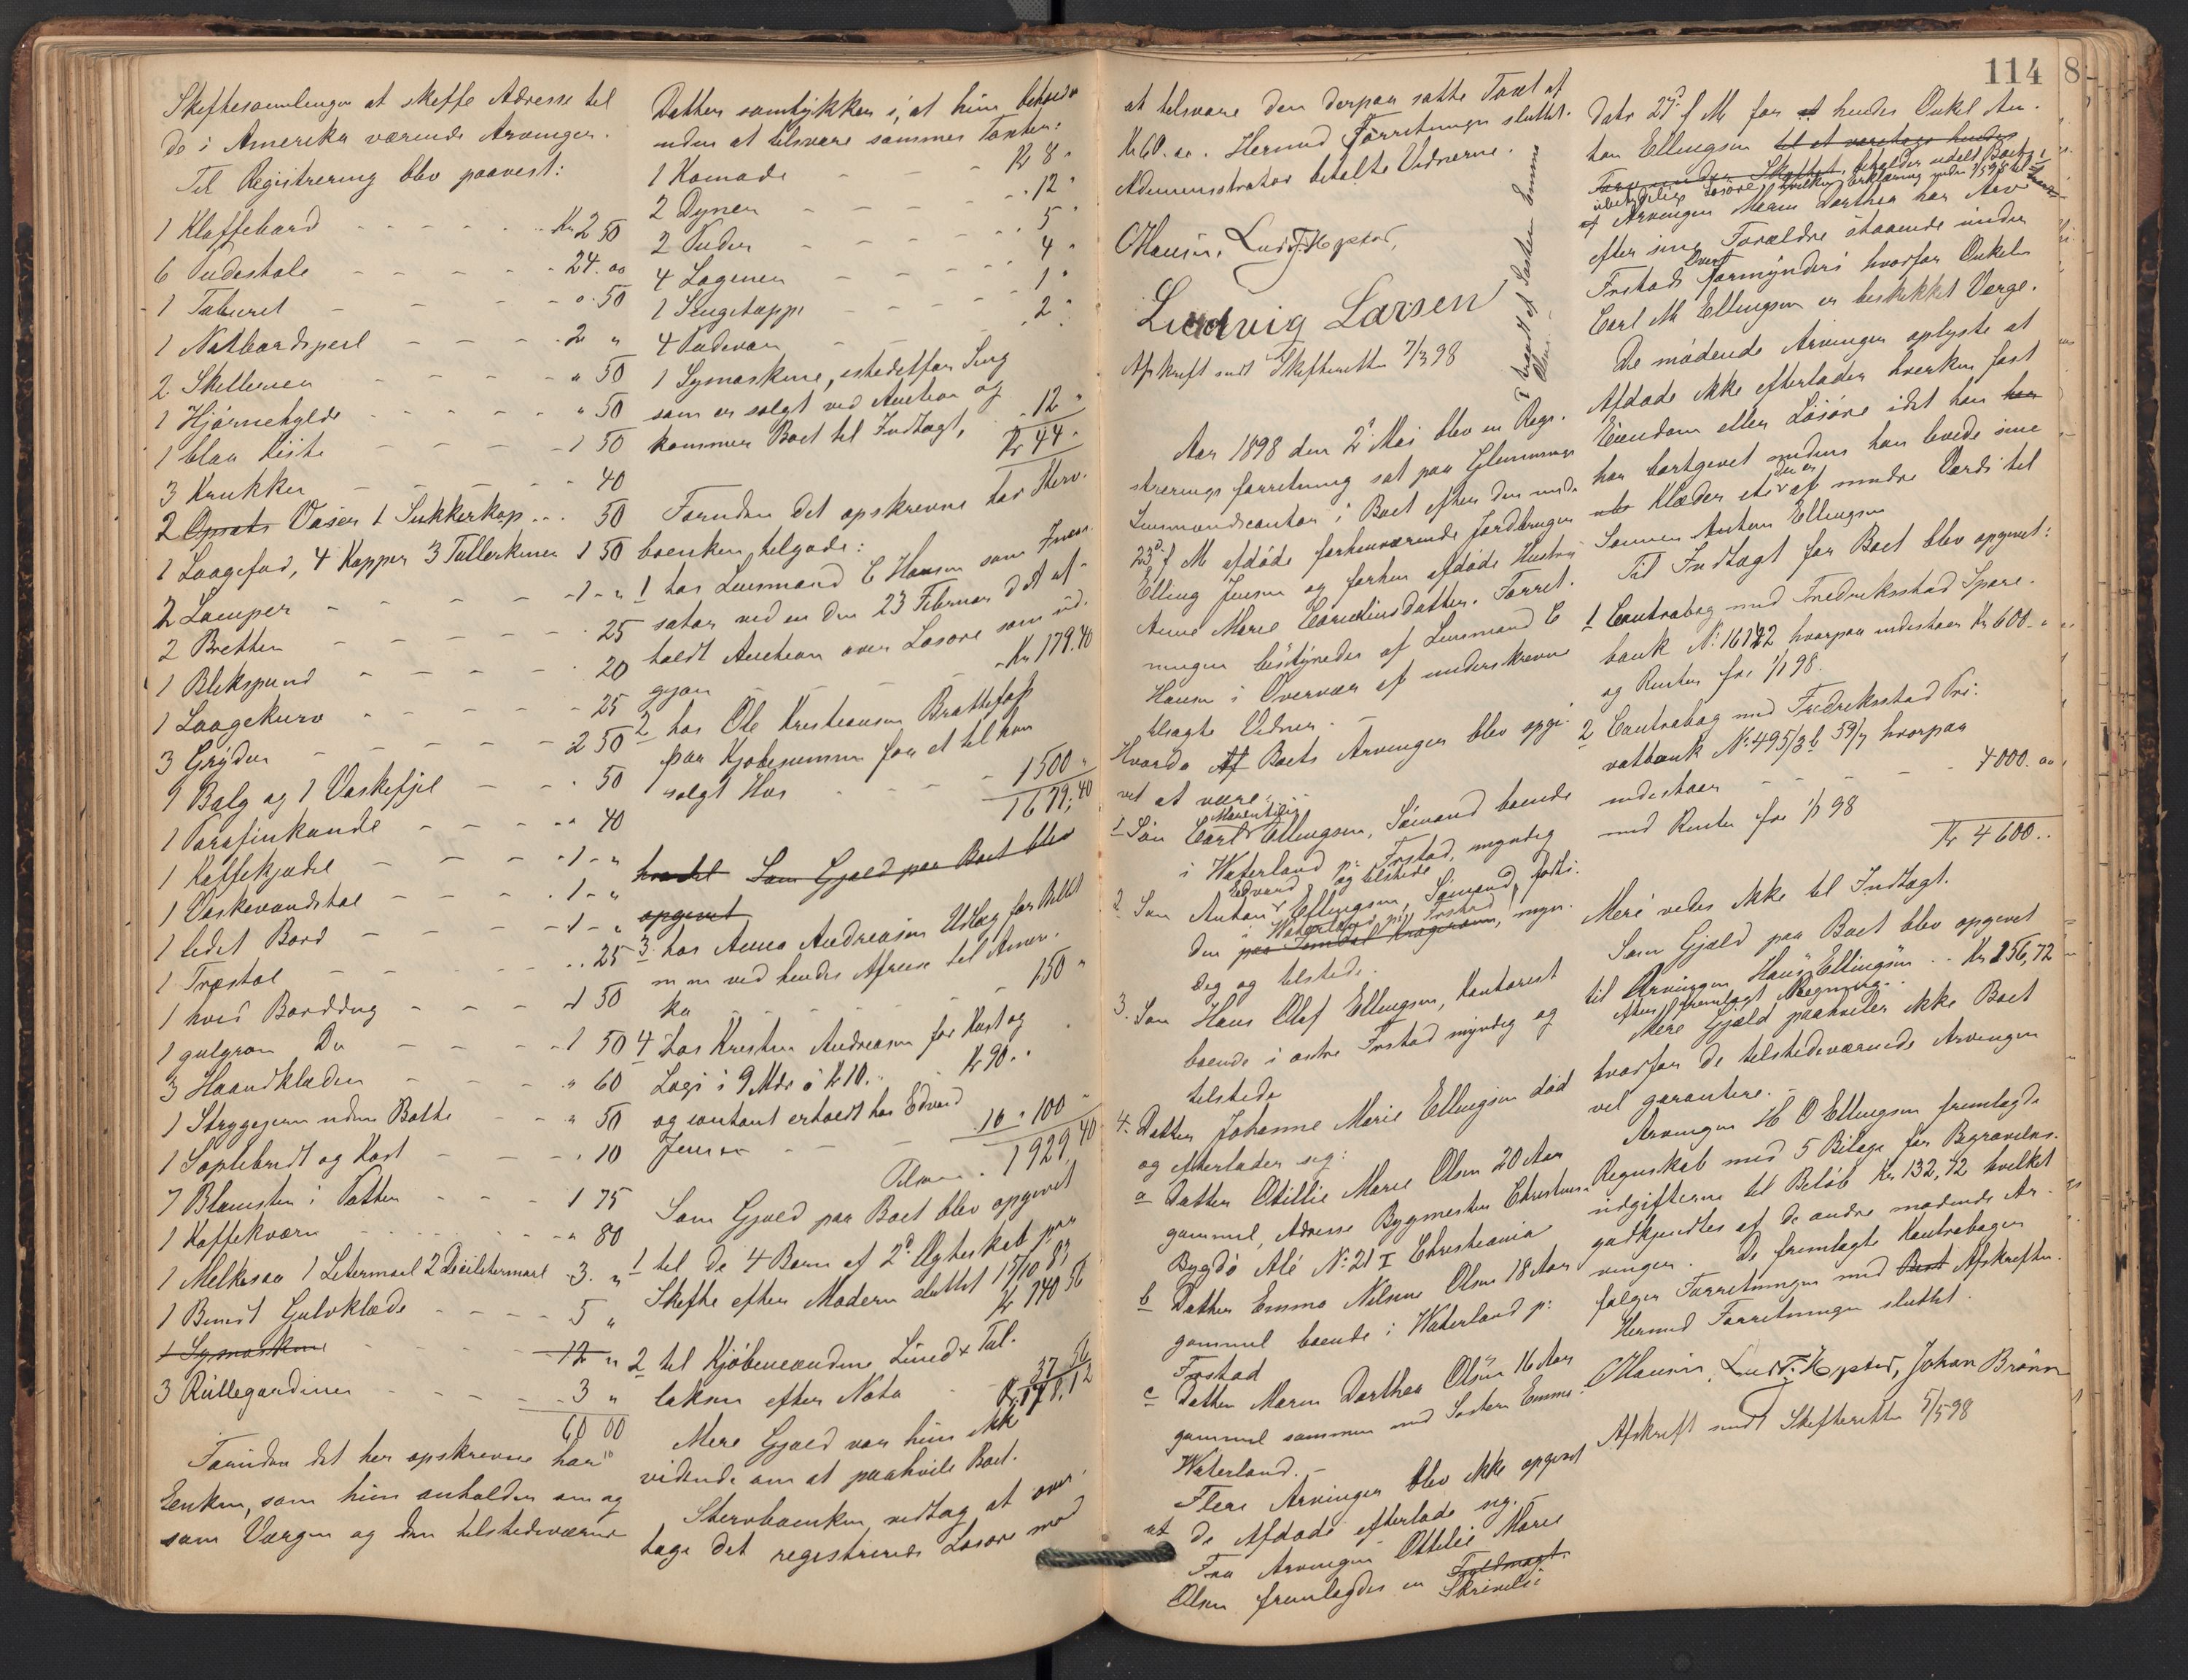 Skiftesamlingen at skaffe Adresse til
de i Amerika værende Arvinger.
Til Registrering blev paavist:
1 Klaffebord - - - - - Kr 2 50
6 Pudestole - - - - - 24.00
1 Taburet - - - - - 0.50
1 Natbordspeil - - - 2 "
2 Skillerier - - - - " 50
1 Hjørnehylde - - - - " 50
1 blaa Kiste - - - - 1 50
3 Krukker - - - - 40
2 Opsats Vaser 1 Sukkerkop - - 50
1 Laagefad, 4 Kopper 3 Tallerkener 1 50
2 Lamper - - - - 1 - "
2 Bretter - - - - 25
1 Blikspand - - - - 20
1 Laagekurv - - - - 25
3 Gryder - - - - 2 50
1 Balg og 1 Vaskefjel - - 50
1 Parafinkande - - - " 40
1 Kaffekjedel - - - 1 - "
1 Vaskevandstol - - - 1 - "
1 lidet Bord - - - 1 - "
1 Træstol - - - - 25
1 hvid Borddug - - - 1 50
1 gulgrøn Do - - - 1 50
3 Haandklæder - - - " 60
1 Strygejern uden Bolte - - " 50
1 Soplebret og Kost - - - 10
7 Blomster i Potter - - 1 75
1 Kaffekværn - - - - " 80
1 Melkesaa 1 Litermaal 2 Decilitermaal 3. "
1 Benest Gulvklæde - - - 5 "
1 Symaskine - - - 12 "
3 Rullegardiner - - - 3 "
60 00
Foruden det her opskrevne har
Enken, som hun anholder om og
som Værgen og den tilstedeværende
Datter samtykker i, at hun beholder
uden at tilsvare sammes Taxter:
1 Komode - - - Kr 8 "
2 Dyner - - - - 12 "
2 Puder - - - - 5 "
4 Lagener - - - - 4 "
1 Sengetæppe - - - 1 "
4 Pudevar - - - 2 "
1 Symaskine, istedetfor Seng
som er solgt ved Auction og
kommer Boet til Indtægt, - 12 "
Kr 44 "
Foruden det opskrevne har Sterv-
boenken tilgode:
1 hos Lensmand C Hansen som Incas-
sator ved en den 23 Februar d A af-
holdt Auction over Løsøre som ud-
gjør - - - Kr 179.40
2 hos Ole Kristiansen Brattefoss
paa Kjøbesummen for et til ham
solgt Hus - - - 1500 "
1679,40
hvortil Som Gjæld paa Boet blev
opgivet
3. hos Anna Andreasen Udlæg for Billet
m m ved hendes Afreise til Ameri-
ka - - - 150 "
4 hos Kristen Andreasen for Kost og
Logi i 9 Mdr á Kr 10. - Kr 90. "
og contant erholdt hos Edvard
Jensen - - - 10 " 100 "
Tilsam. 1929,40
Som Gjæld paa Boet blev opgivet
1 til de 4 Børn af 2det Ægteskab paa
Skifte efter Moderen sluttet 15/10 83
Kr 740 56
2 til Kjøbmændene Lined & Tal-
laksen efter Nota - 37 56
Kr 778,12
Mere Gjæld var hun ikke
vidende om at paahvile Boet.
Stervboenken vedtog at over-
tage det registrerede Løsøre mod
at tilsvare den derpaa satte Taxt af
Kr 60. 00. Hermed Forretningen sluttet.
Administrator betalte Vidnerne.
CHansen, Ludv. T. Hopstad,
Ludvig Larsen
Afskrift sendt Skifteretten 7/3 98
Aar 1898 den 2 Mai blev en Regi-
streringsforretning sat paa Glemminge
Lensmandscontor i Boet efter den under
23 f M afdøde forhenværende Jordbruger
Elling Jensen og forhen afdøde Hustru
Anne Marie Corneliusdatter. Forret-
ningen bestyredes af Lensmand C
Hansen i Overvær af underskrevne
tilsagte Vidner. -
Hvorda Af Boets Arvinger blev opgi-
vet at være:
1 Søn Carl Martin Ellingsen, Sømand boende
i Waterland pr Frstad, myndig
og tilstede
2. Søn Anton Edvard Ellingsen, Sømand, født i
den paa Tomdal Kragerøen, i Waterland pr Frstad, myn-
dig og tilstede.
3. Søn Hans Olaf Ellingsen, Kontorist
boende i østre Frstad myndig og
tilstede
4. Datter Johanne Marie Ellingsen død
og efterlader sig:
a Datter Otillie Marie Olsen 20 Aar
gammel, Adresse Bygmester Christensen
Bygdø Alé No 21 I Christiania
b Datter Emma Nilsine Olsen 18 Aar
gammel boende i Waterland pr
Frstad
c Datter Maren Dorthea Olsen 16 Aar
gammel sammen med Søsteren Emma
Waterland. -
Flere Arvinger blev ikke opgivet
at de Afdøde efterlade sig. -
Fra Arvingen Ottilie Marie
Olsen fremlagdes en Fuldmagt Skrivelse
bragt af Søsteren Emma
Olsen
114
8
datr 29 f M for at hendes Onkel An-
ton Ellingsen til at varetage hendes
Tarv under Skiftet, beholder udelt Boets
ubetydelige Løsøre, hvilken Erklæring
af Arvingen Maren Dorthea har Arv
efter sine Forældre staaende under
Frstads Overformynderi hvorfor Onkelen
Carl M Ellingsen er beskikket Verge.
De mødende Arvinger oplyste at
Afdøde ikke efterlader hverken fast
Eiendom eller Løsøre idet han har
har bortgivet medens han levede sine
Klæder etc der er af mindre Værdi til
Sønnen Anton Ellingsen
Til Indtægt for Boet blev opgivet:
1 Contrabog med Fredriksstad Spare-
bank No 16122 hvorpaa indestaar Kr 600. "
og Renter fra 1/1 98.
2 Contrabog med Fredriksstad Pri-
vatbank No 495/3b 59/7 hvorpaa
indestaar - - - 4000. 00
med Renter fra 1/1 98
Kr 4600. "
Mere vides ikke til Indtægt.
Som Gjæld paa Boet blev opgivet
til Arvingen Hans Ellingsen - Kr 256,72
efter fremlagt Regning.
Mere Gjæld paahviler ikke Boet
hvorfor de tilstedeværende Arvinger
vil garantere. -
Arvingen H O Ellingsen fremlagde
Regnskab med 5 Bilage for Begravelses-
udgifterne til Beløb Kr 132,72 hvilket
godkjendtes af de andre mødende Ar-
vinger. De fremlagte Kontrabøger
følger Forretningen med Boet Afskriften.
Hermed Forretningen sluttet.
CHansen, Ludv. T. Hopstad, Johan Brønn
Afskrift sendt Skifteretten 5/5 98